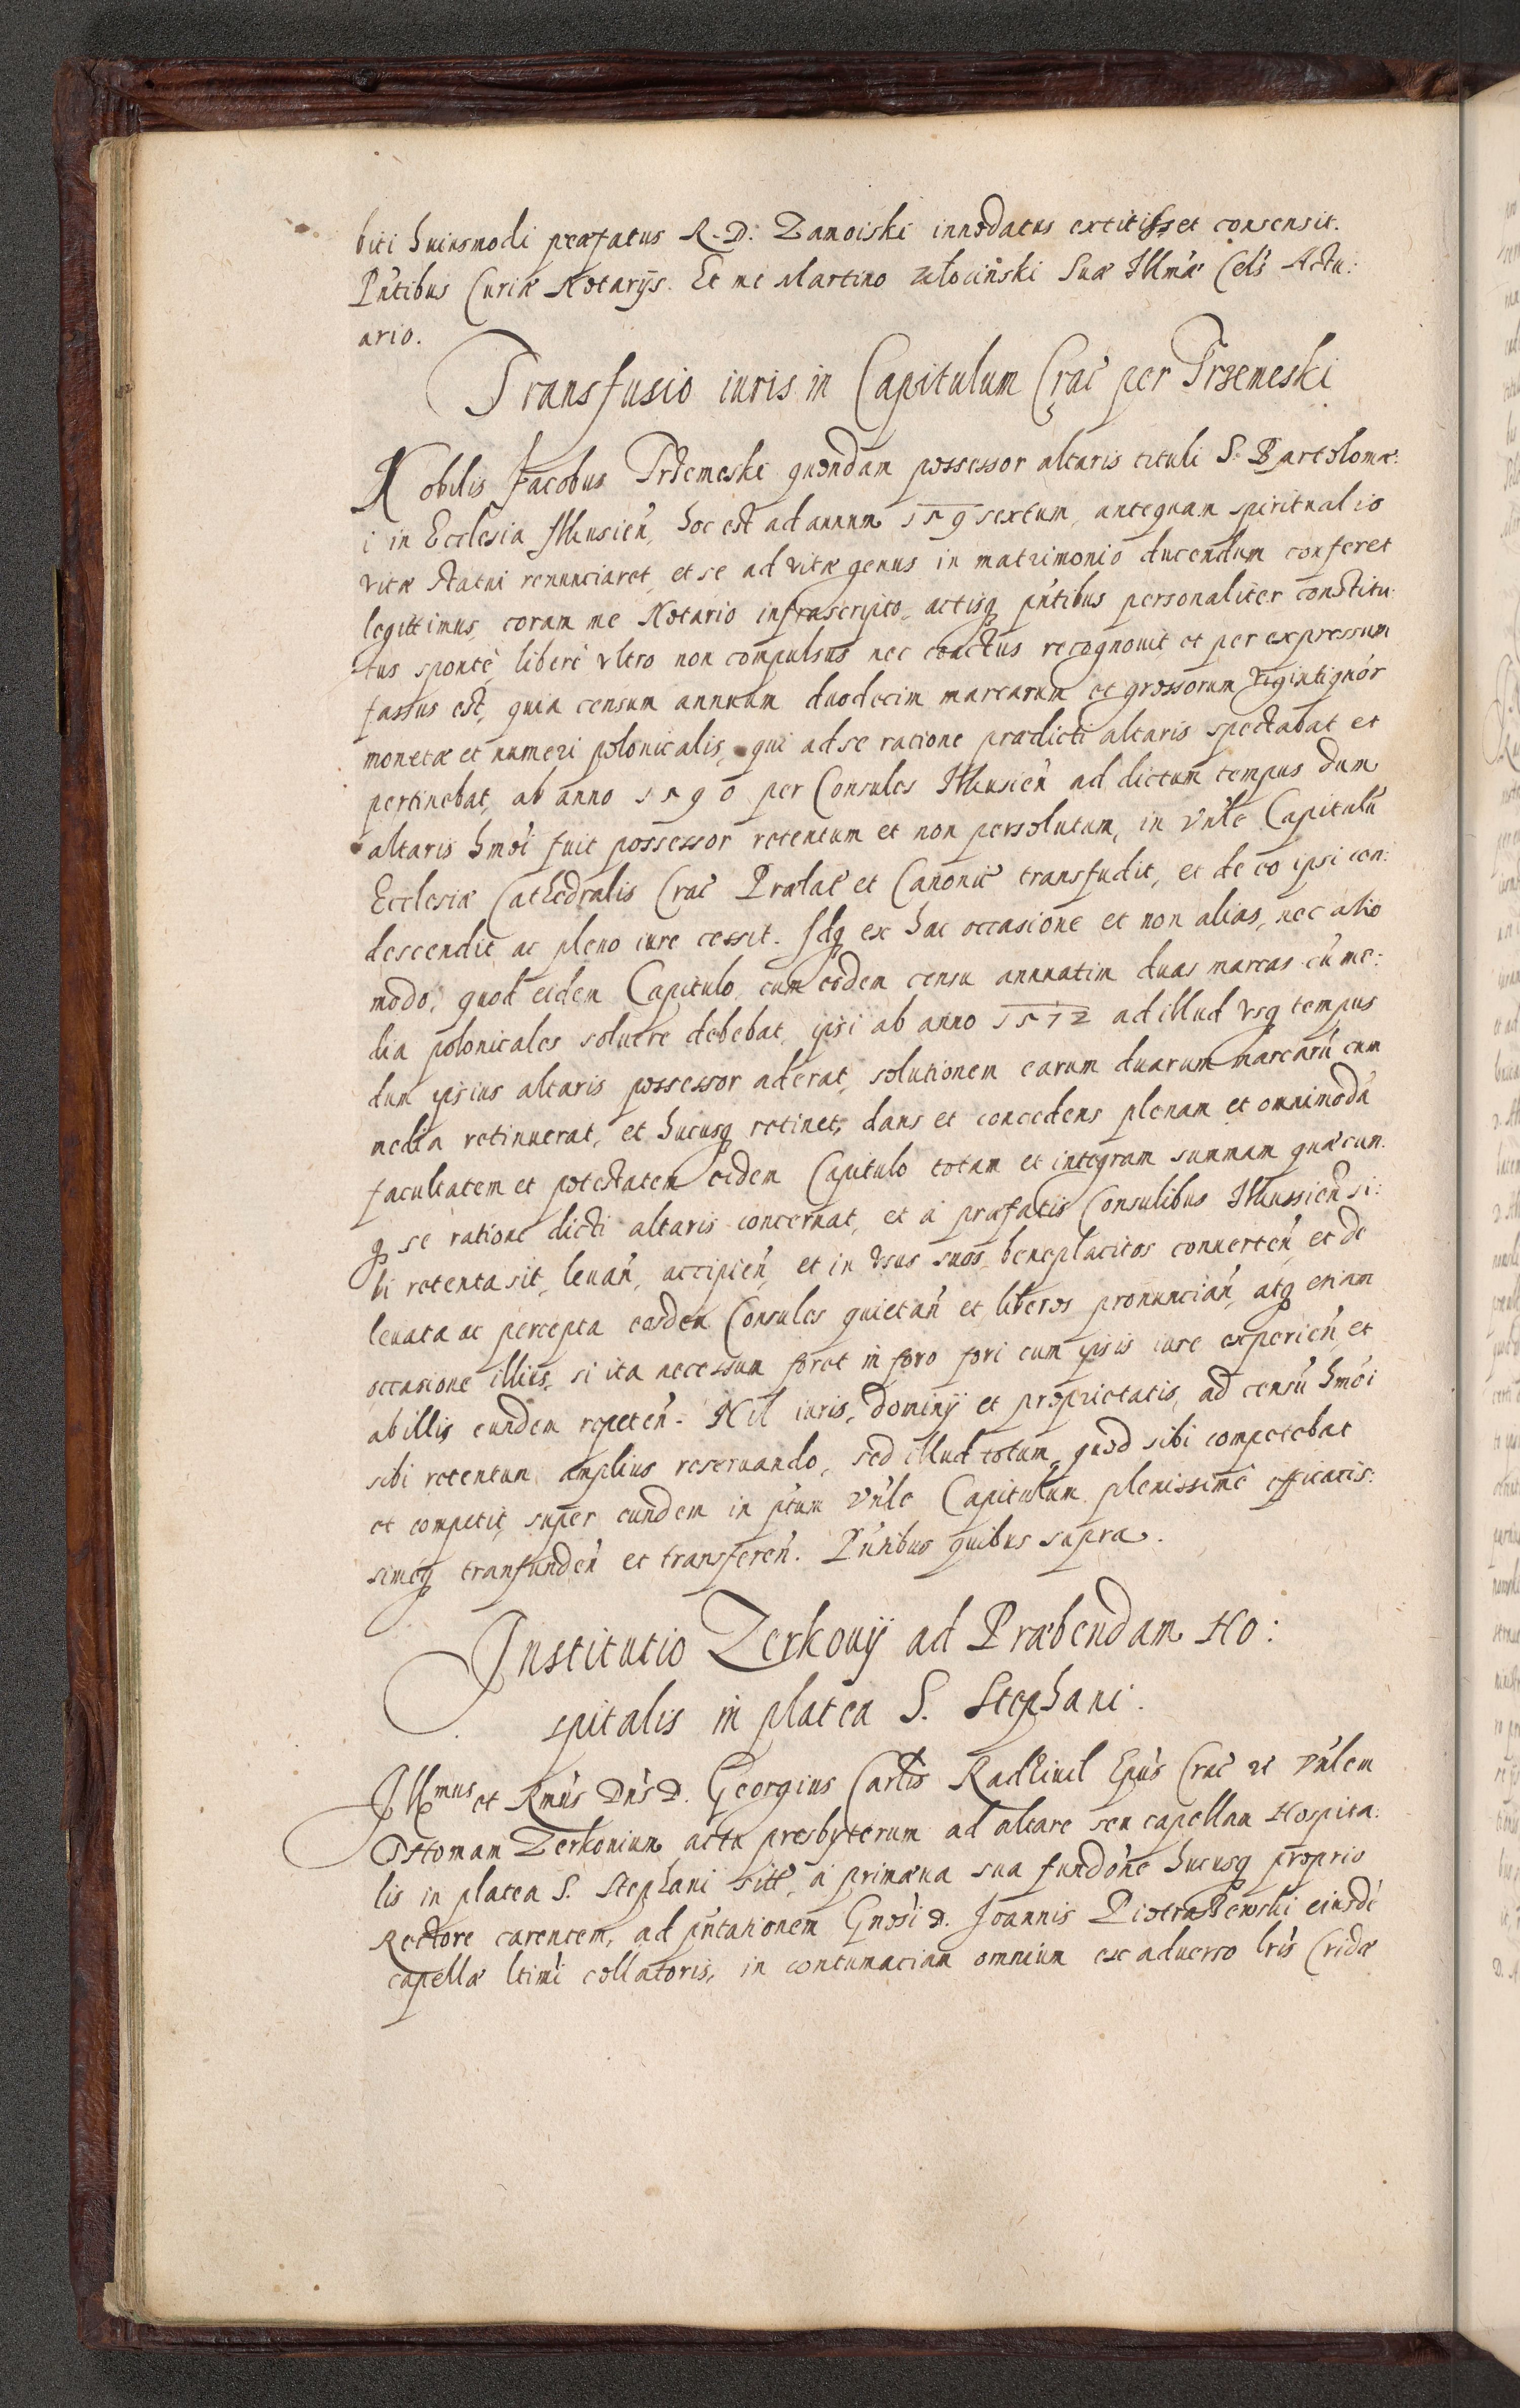 biti huiusmodi praefatus R. D. Zamoiski innodatus extitisset consensit.
Pńtibus Curiae Notarijs. Et me Martino Złociński Suae Illmae Cels Actu:
ario.
Transfusio iuris in Capitulum Crac per Trzemeski
Nobilis Jacobus Trzemeski quondam possessor altaris tituli S. Bartolomae:
i in Ecclesia Ilkusień, hoc est ad annum 159 sextum, antequam spiritualis
vitae statui renunciaret, et se ad vitae genus in matrimonio ducendum conferet
legittimus, coram me Notario infrascripto, actisq pńtibus personaliter constitu:
tus spontè, liberè vltro non compulsus nec coactus recognouit et per expressum
fassus est, quia censum annuum duodecim marcarum et grossorum vigintiquór
monetae et numeri polonicalis, qui ad se racione praedicti altaris spectabat et
pertinebat, ab anno 1590 per Consules Ilkusień ad dictum tempus dum
altaris hmói fuit possessor retentum et non persolutum, in Vńle Capitulũ
Ecclesiae Cathedralis Crac Praelat et Canonic transfudit, et de eo ipsi con:
descendit ac pleno iure cessit. Idq ex hac occasione et non alias, nec alio
modo, quod eidem Capitulo cum eodem censu annuatim duas marcas cũ me:
dia polonicales soluere debebat, ipsi ab anno 1572 ad illud vsq tempus
dum ipsius altaris possessor aderat, solutionem earum duarum marcarũ cum
media retinuerat, et hucusq retinet, dans et concedens plenam et omnimodã
facultatem et potestatem eidem Capitulo totam et integram summam quaecun:
q se ratione dicti altaris concernat, et à praefatis Consulibus Ilkussień si:
bi retenta sit, leuań, accipień, et in vsus suos beneplacitos conuerteń, et de
leuata ac percepta eosdem Consules quietań et liberos pronunciań, atq etiam
occasione illius, si ita necessum foret in foro fori cum ipsis iure experień et
ab illis eundem repeteń. Nil iuris, dominij et proprietatis, ad censũ hmói
sibi retentum amplius reseruando, sed illud totum, quod sibi competebat
et competit, super eundem in ptum Vńle Capitulum plenissimè efficacis:
simeq tranfundeń et transfereń. Pńtibus quibus supra.
Institutio Zerkouij ad Praebendam Ho:
spitalis in platea S. Stephani.
Illmus et Rmus Dńs D. Georgius Carlis Radziuil Epus Crac etc Vńlem
Thoman Zerkouium actu presbyterum ad altare seu capellam Hospita:
lis in platea S. Stephani sitt, à primaeua sua fundóne hucusq proprio
Rectore carentem, ad pńtationem Gnósi D. Joannis Piotraszewski eiusdé
capellae ltimi collatoris, in contumaciam omnium ex aduerso lrís Cridae